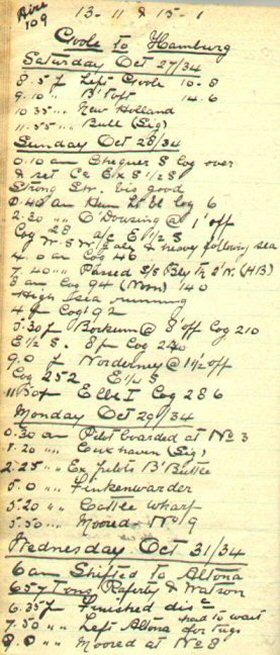 Aire
109
13-11 & 15-1
Goole to Hamburg
Saturday Oct 27/34
8.5 p Left Goole 10-8
9.10 " B'Toft 14.6
10.35 " New Holland
11.55 " Bull (Sig)
Sunday Oct 28/34
0.10 am Chequer S Log over
& set Co E x S ½ S
Strong Str. vis good
0.48 am Hum Lt Vl Log 6
2.20 " O'Dousing @ 1' off
Log 28 a/c E ½ S
W.S.W gale & heavy following sea
4.0 am Log 46
7.40 " Passed S/S
8 am Log 94 (Noon) 140
High Sea running
4 p Log 192
5.30 p Borkum @ 8' off Log 210
E ½ S. 8 p Log 240
9.0 p Norderney @ 1½ off
Log 252 E ¼ S
11.50 p Elbe I Log 286
Monday Oct 29/34
0.30 am Pilot boarded at No 3
1.20 " Cuxhaven (Sig)
2.25 " Ex pilots B'Buttle
5.0 " Finkenwarder
5.20 " Cattle Wharf
5.50 " Moored No 19
Wednesday Oct 31/34
6 am Shifted to Altona
657 Tons Raferty & Watson
6.35 p Finished disc
7.50 " Left Altona had to wait
for tugs
9.0 " Moored at No 8